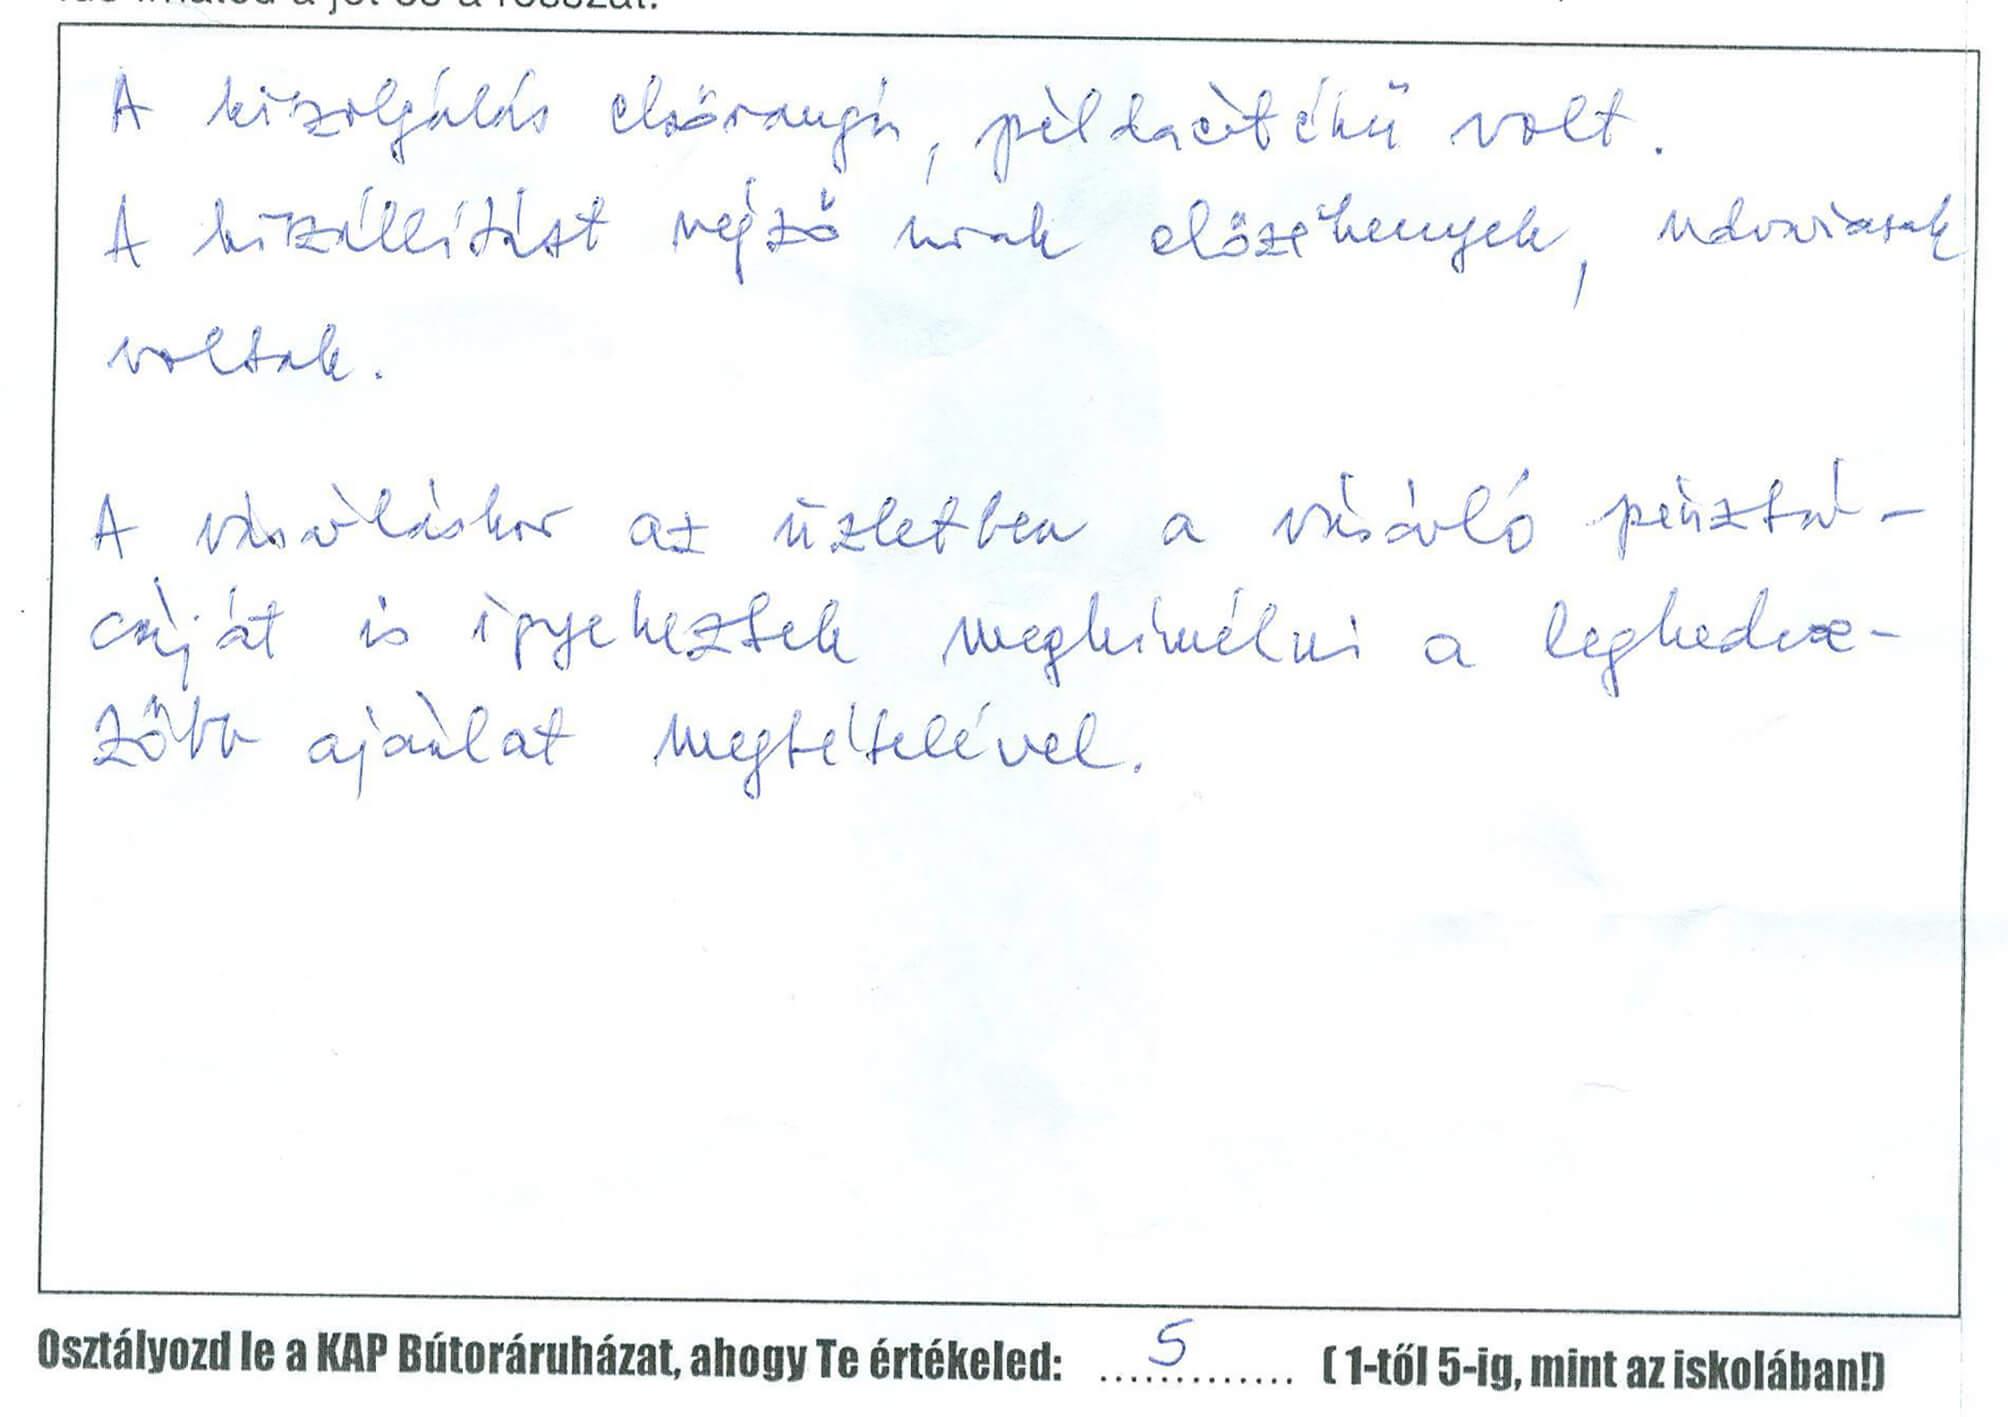 ide írhatod a jót és a rosszat:
A kiszolgálás elsőrangú, példaértékű volt.
A kiszállítást végző urak előzékenyek, udvariasak
voltak.
A vásárláskor az üzletben a vásárló pénztár-
cáját is igyekeztek megkímélni a legkedve-
zőbb ajánlat megtételével.
Osztályozd le a KAP Bútoráruházat, ahogy Te értékeled: .....5....... ( 1-től 5-ig, mint az iskolában!)